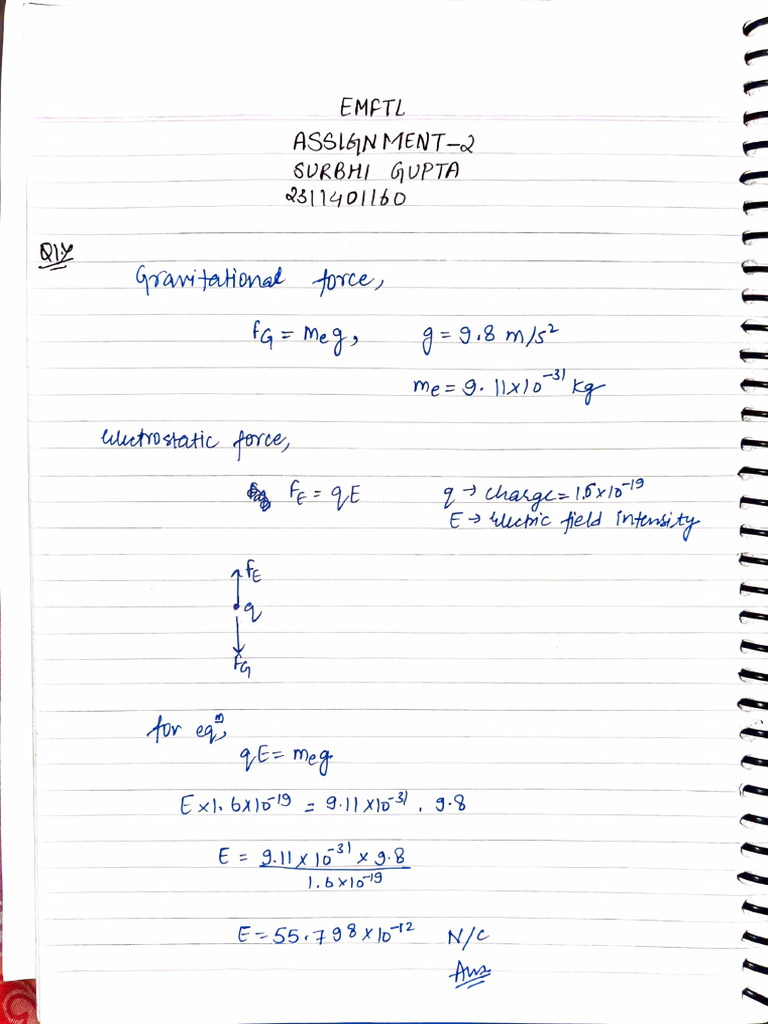 EMFTL
ASSIGNMENT-2
SURBHI GUPTA
2311401160
Q1Y
Gravitational force,
fG = meg, g = 9.8 m/s²
me = 9.11×10⁻³¹ kg
electrostatic force,
fE = qE q → charge = 1.6×10⁻¹⁹
E → electric field intensity
fE
q
fG
for eqᵐ,
qE = meg
E×1.6×10⁻¹⁹ = 9.11×10⁻³¹ . 9.8
E = 9.11×10⁻³¹ × 9.8
1.6×10⁻¹⁹
E = 55.798×10⁻¹² N/C
Ans